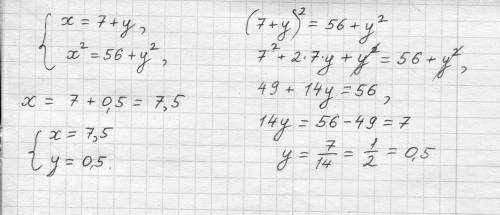 { x = 7 + y,
x² = 56 + y²,
x = 7 + 0,5 = 7,5
{ x = 7,5
y = 0,5.
(7 + y)² = 56 + y²
7² + 2·7·y + y² = 56 + y²,
49 + 14y = 56,
14y = 56 - 49 = 7
y = 7/14 = 1/2 = 0,5